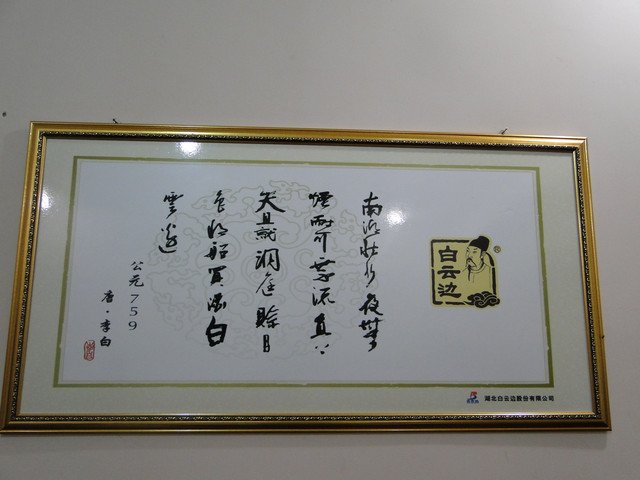 白云边
®
南湖秋水夜無
煙耐可乘流直上
天且就洞庭賒月
色將船買酒白
雲邊
公元759
唐·李白
湖北白云边股份有限公司